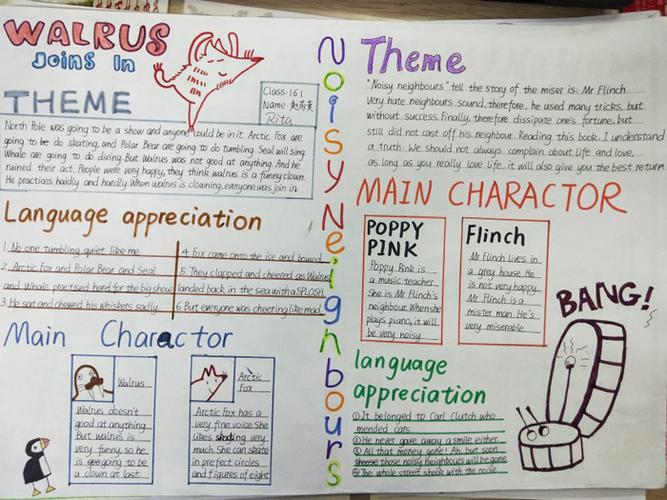 WALRUS
Joins In
THEME
Class: 161
Name:
Rita
North Pole was going to be a show and anyone could be in it. Arctic Fox are
going to be do skating, and Polar Bear are going to do tumbling. Seal will sing.
Whale are going to do diving. But Walrus was not good at anything. And he
ruined their act. People were very happy, they think walrus is a funny clown.
He practices haidly and hardly. When walrus is clowning, everyone was join in.
Language appreciation
1. No one tumbling quiet like me.
2. Arctic Fox and Polar Bear and Seal
and Whale practised hard for the big show
3. He sat and chewed his whiskers sadly.
4. Fox came onto the ice and bowed
5. They clapped and cheered as Walrus
landed back in the sea with a SPLOSH
6. But everyone was cheering like mad
Main Charactor
Walrus
Walrus doesn't
good at anything.
But walrus is
very funny, so he
is going to be
a clown at last.
Arctic
Fox
Arctic Fox has a
very fine voice. She
likes skating very
much. She can skate
in prefect circles
and figures of eight
Noisy Neighbours
Theme
"Noisy neighbours" tell the story of the miser is: Mr Flinch
very hate neighbours sound, therefore, he used many tricks, but
without success. Finally, therefore dissipate one's fortune, but
still did not cast off his neighbour. Reading this book, I understand
a truth: We should not always complain about life and love,
as long as you really love life, it will also give you the best return.
MAIN CHARACTOR
POPPY
PINK
Poppy Pink is
a music teacher.
She is Mr Flinch's
neighbour. When she
plays piano, it will
be very noisy.
Flinch
Mr Flinch lives in
a grey house. He
is not very happy.
Mr Flinch is a
mister man. He's
very miserable.
BANG!
language
appreciation
① It belonged to Carl Clutch who
mended cars.
② He never gave away a smile either.
③ All that money gone! Ah, but soon
those noisy neighbours will be gone
④ The whole street shook with the noise.